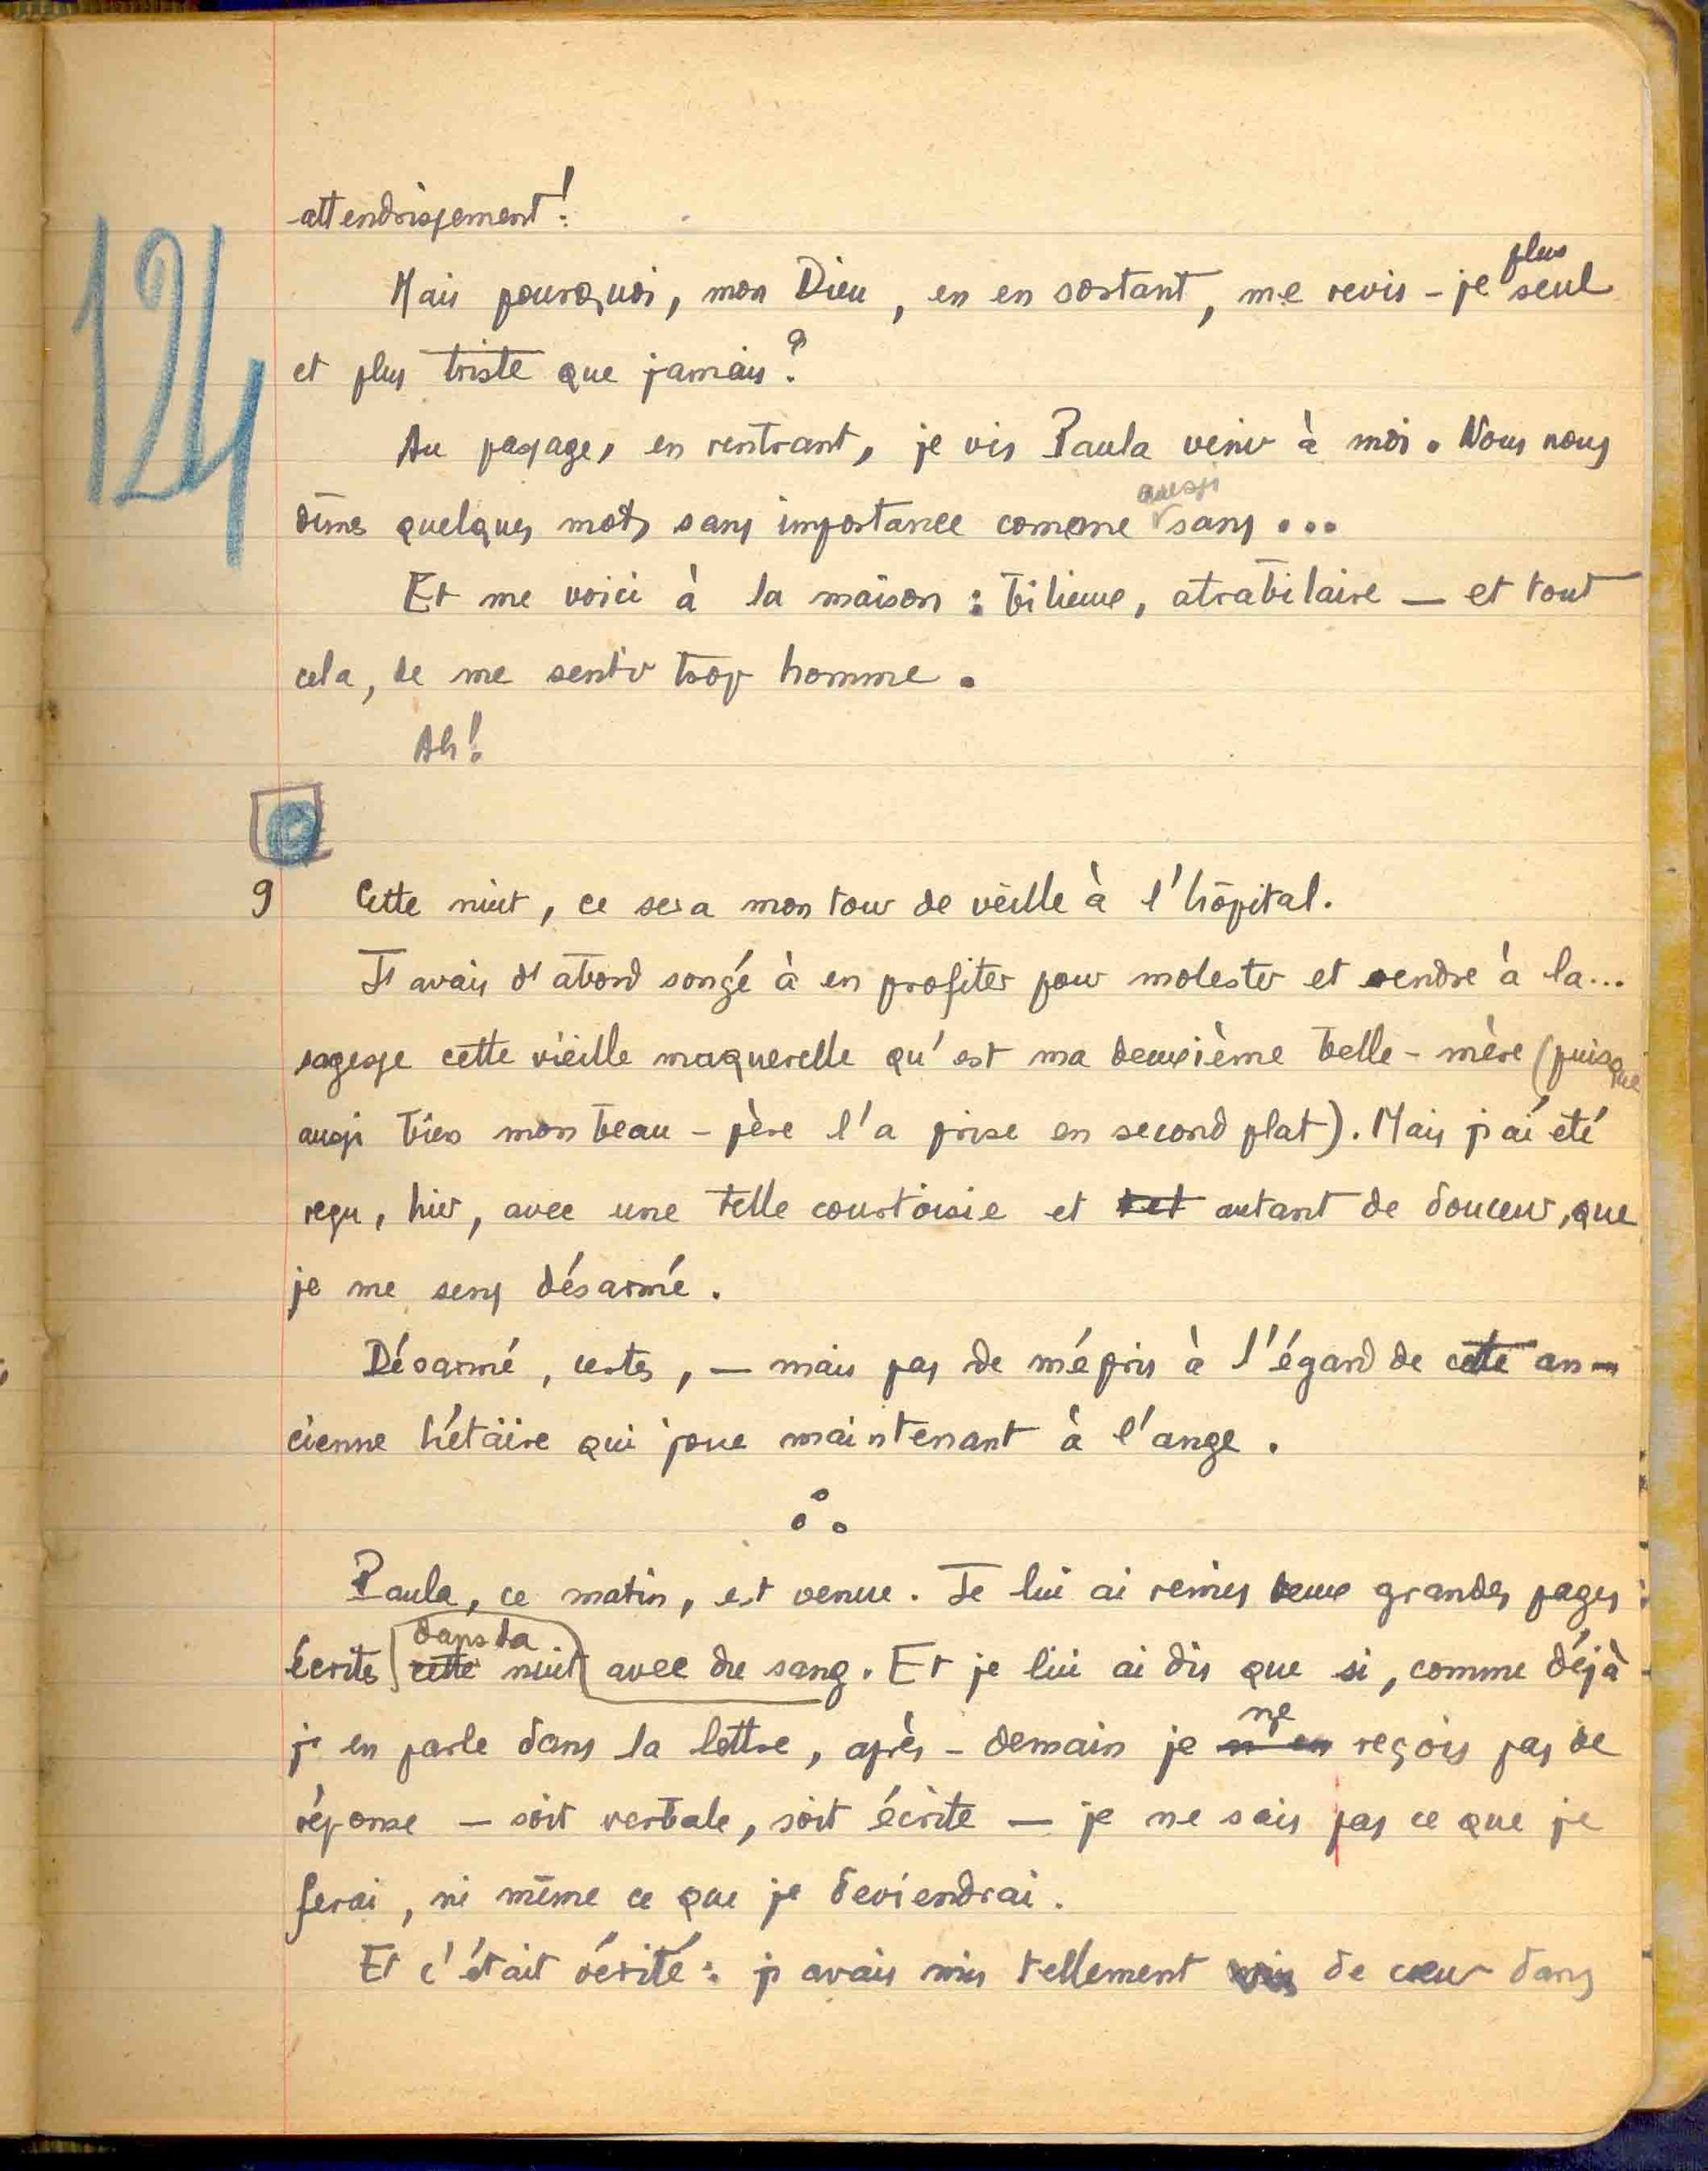 attendrissement!
124
Mais pourquoi, mon Dieu, en en sortant, me revis-je plus seul
et plus triste que jamais?
Au passage, en rentrant, je vis Paula venir à moi. Nous nous
dîmes quelques mots sans importance comme aussi sans...
Et me voici à la maison: bilieux, atrabilaire — et tout
cela, de me sentir trop homme.
Ah!
9 Cette nuit, ce sera mon tour de veille à l'hôpital.
J'avais d'abord songé à en profiter pour molester et rendre à la...
sagesse cette vieille maquerelle qu'est ma deuxième belle-mère (puisque
aussi bien mon beau-père l'a prise en second plat). Mais j'ai été
reçu, hier, avec une telle courtoisie et tet autant de douceur, que
je me sens désarmé.
Désarmé, certes, — mais pas de mépris à l'égard de cette an-
cienne hétaïre qui joue maintenant à l'ange.
Paula, ce matin, est venue. Je lui ai remis deux grandes pages
écrites cette dans la nuit avec du sang. Et je lui ai dis que si, comme déjà
j'en parle dans la lettre, après-demain je n'en ne reçois pas de
réponse — soit verbale, soit écrite — je ne sais pas ce que je
ferai, ni même ce que je deviendrai.
Et c'était vérité: j'avais mis tellement mis de cœur dans